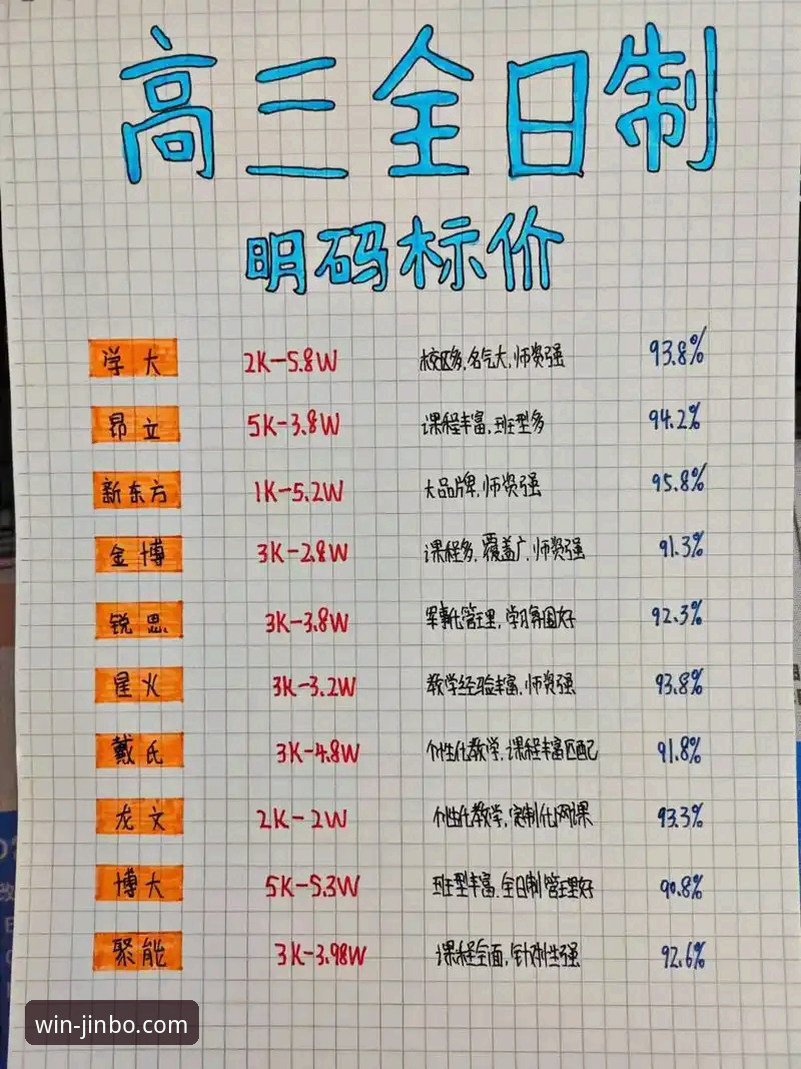 高三全日制
明码标价
学大 2K-5.8W 校区多,名气大,师资强 93.8%
昂立 5K-3.8W 课程丰富,班型多 94.2%
新东方 1K-5.2W 大品牌,师资强 95.8%
金博 3K-2.8W 课程多,覆盖广,师资强 91.3%
锐思 3K-3.8W 军事化管理,学习氛围好 92.3%
星火 3K-3.2W 教学经验丰富,师资强 93.8%
戴氏 3K-4.8W 个性化教学,课程丰富匹配 91.8%
龙文 2K-2W 个性化教学,定制化网课 93.3%
博大 5K-5.3W 班型丰富,全日制管理好 90.8%
聚能 3K-3.98W 课程全面,针对性强 92.6%
win-jinbo.com